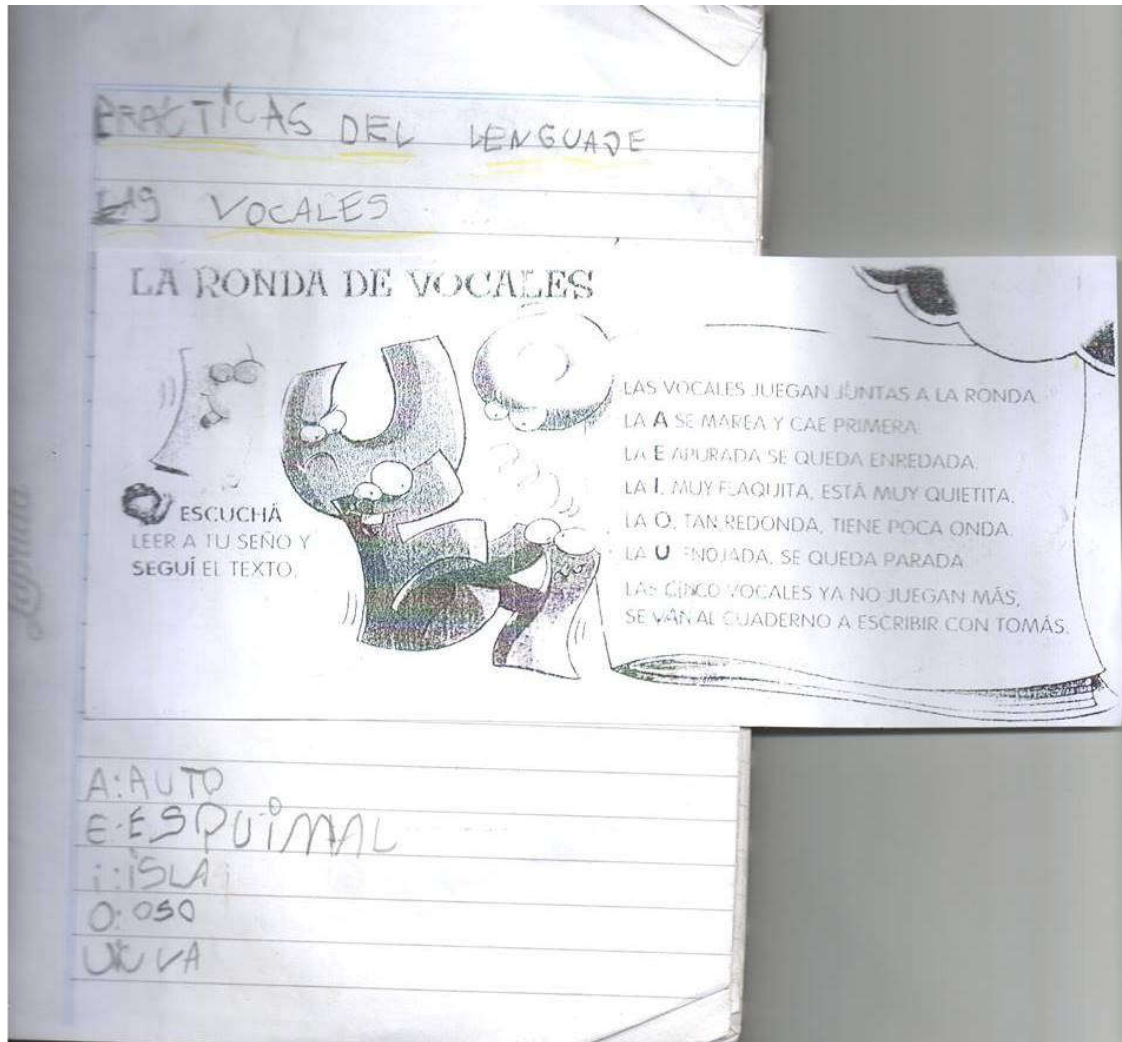 PRACTICAS DEL LENGUAJE
LAS VOCALES
LA RONDA DE VOCALES
ESCUCHÁ
LEER A TU SEÑO Y
SEGUÍ EL TEXTO.
LAS VOCALES JUEGAN JUNTAS A LA RONDA.
LA A SE MAREA Y CAE PRIMERA.
LA E APURADA SE QUEDA ENREDADA.
LA I, MUY FLAQUITA, ESTÁ MUY QUIETITA.
LA O, TAN REDONDA, TIENE POCA ONDA.
LA U ENOJADA, SE QUEDA PARADA.
LAS CINCO VOCALES YA NO JUEGAN MÁS,
SE VAN AL CUADERNO A ESCRIBIR CON TOMÁS.
A: AUTO
E: ESQUiMAL
i: iSLA
O: OSO
U: UVA